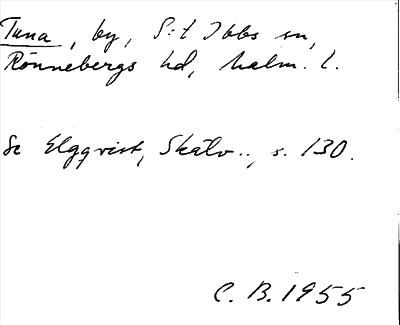 Tuna, by, S:t Ibbs sn,
Rönnebergs hd, Malm. l.
Se Elgqvist, Skälv.., s. 130.
C. B. 1955